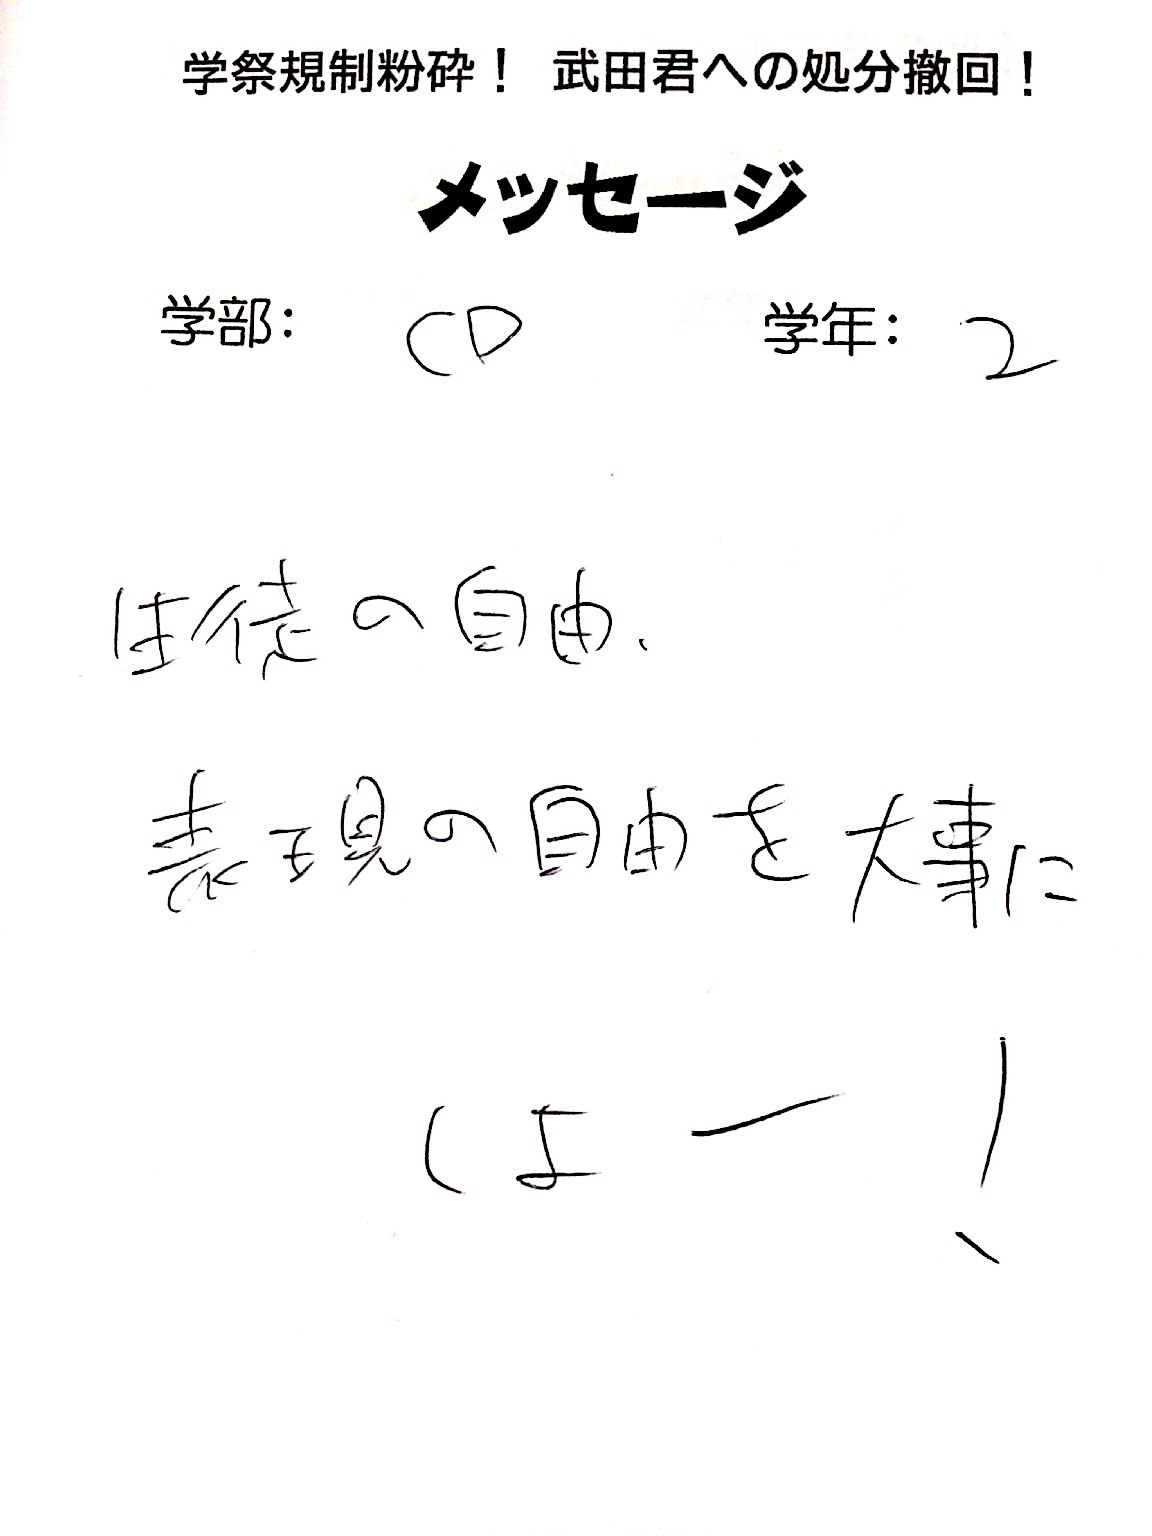 学祭規制粉砕！ 武田君への処分撤回！
メッセージ
学部： CD 学年： 2
生徒の自由、
表現の自由を大事に
しよー！